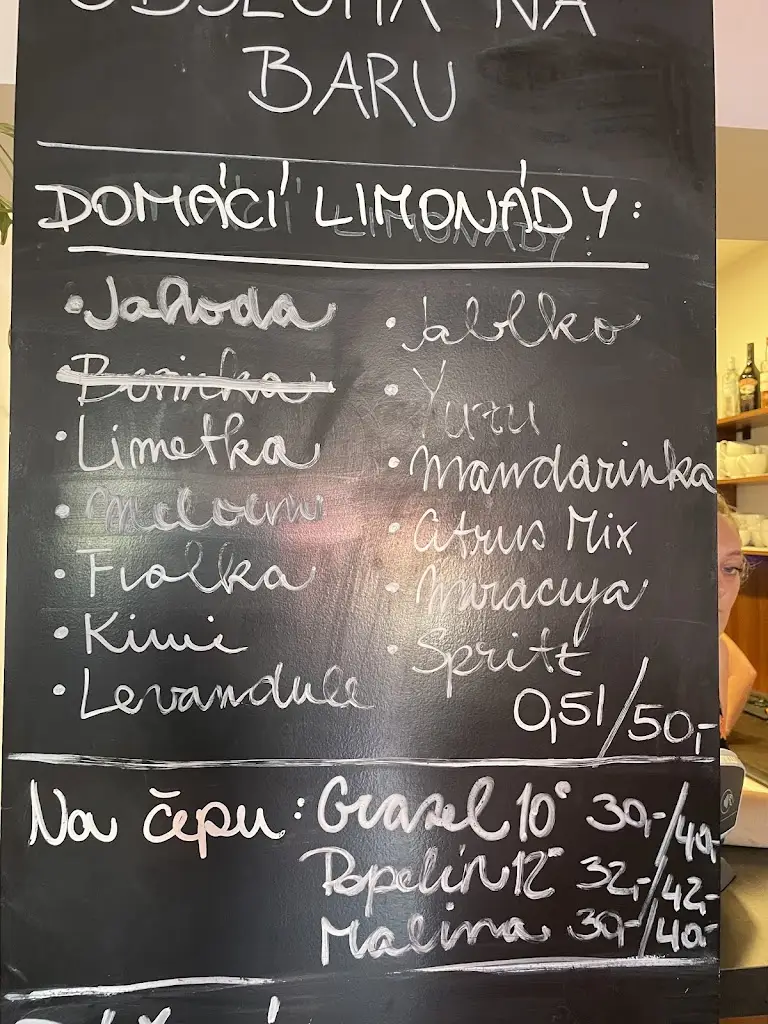 OBSLUHA NA
BARU
DOMÁCÍ LIMONÁDY:
• Jahoda
Borůvka
• Limetka
• Meloun
• Fialka
• Kiwi
• Levandule
• Jablko
• Yuzu
• Mandarinka
• Citrus Mix
• Maracuja
• Spritz
0,5l/50,-
Na čepu: Grasel 10° 30,-/40,-
Popelín 12° 32,-/42,-
Malina 30,-/40,-